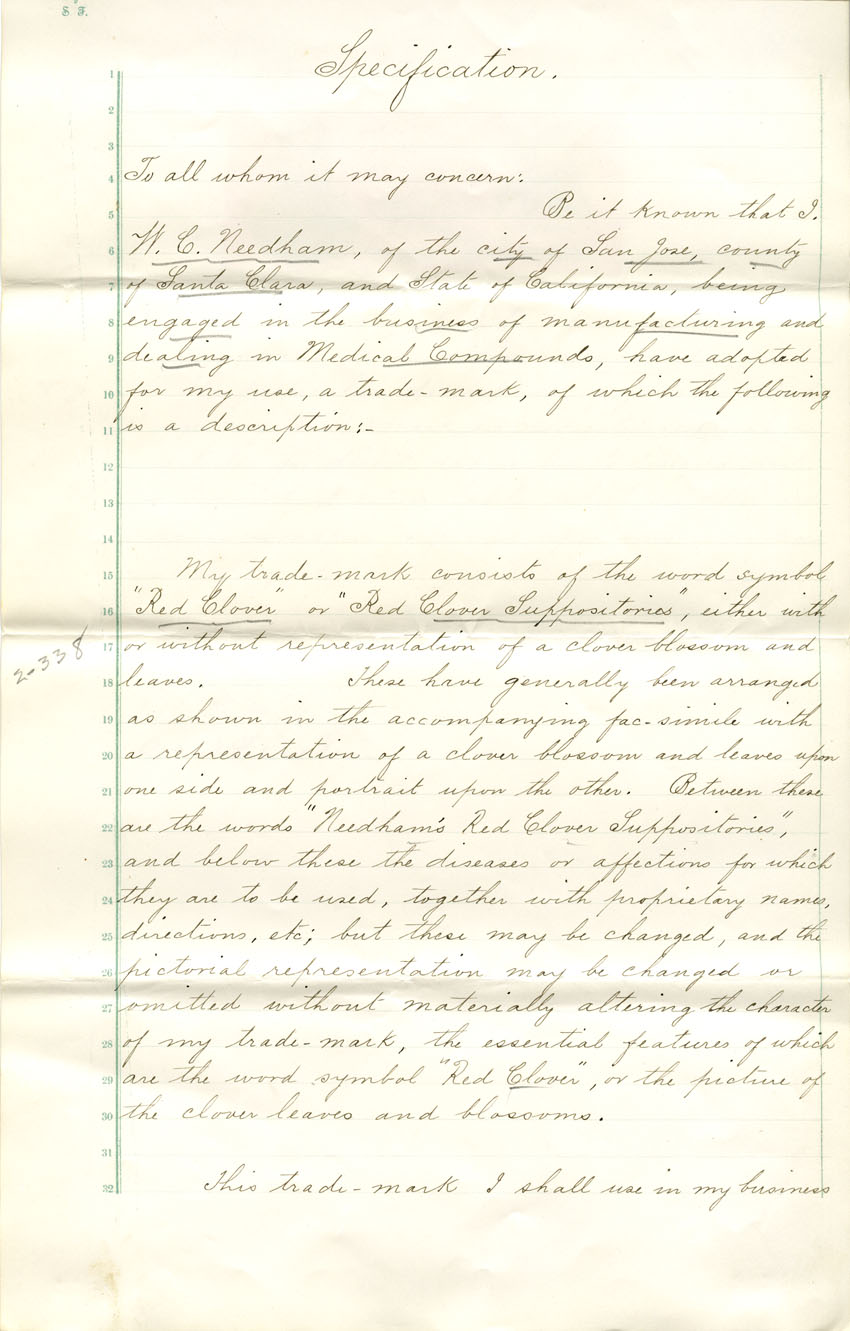 S F.
Specification.
1
2
3
4 To all whom it may concern:
5 Be it known that I.
6 W. C. Needham, of the city of San Jose, county
7 of Santa Clara, and State of California, being
8 engaged in the business of manufacturing and
9 dealing in Medical Compounds, have adopted
10 for my use, a trade-mark, of which the following
11 is a description:-
12
13
14
15 My trade-mark consists of the word symbol
16 "Red Clover" or "Red Clover Suppositories", either with
17 or without representation of a clover blossom and
2-338
18 leaves. These have generally been arranged
19 as shown in the accompanying fac-simile with
20 a representation of a clover blossom and leaves upon
21 one side and portrait upon the other. Between these
22 are the words "Needham's Red Clover Suppositories",
23 and below these the diseases or affections for which
24 they are to be used, together with proprietary names,
25 directions, etc; but these may be changed, and the
26 pictorial representation may be changed or
27 omitted without materially altering the character
28 of my trade-mark, the essential features of which
29 are the word symbol "Red Clover", or the picture of
30 the clover leaves and blossoms.
31
32 This trade-mark I shall use in my business